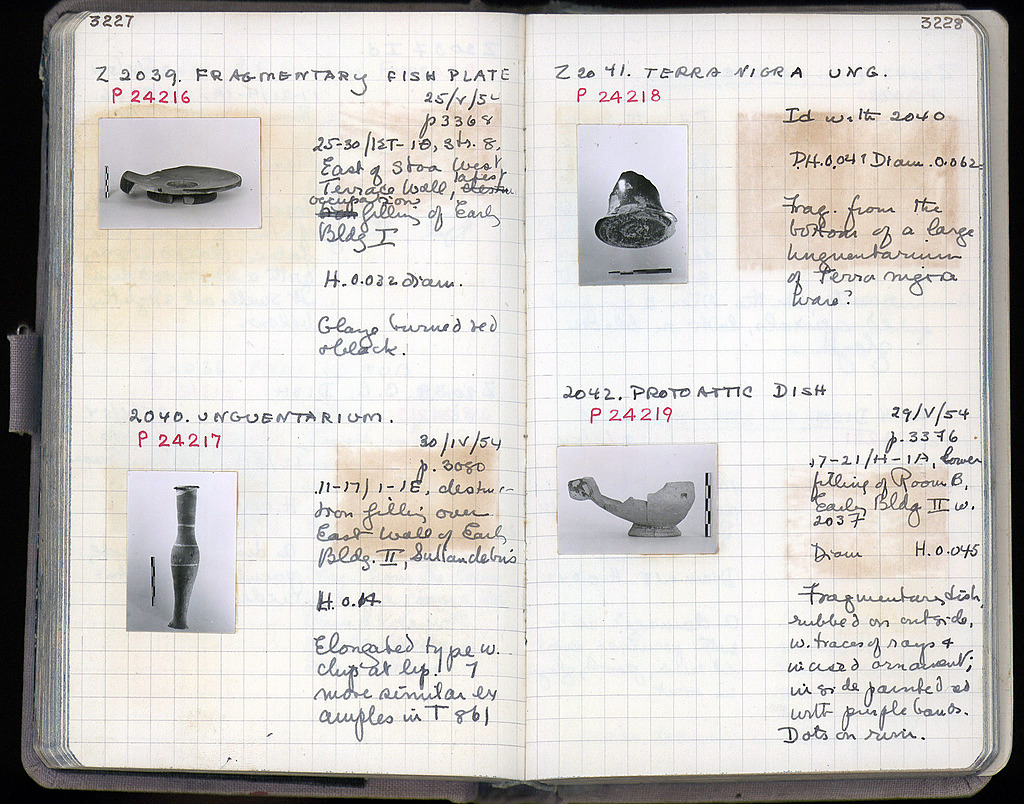 3227
Z 2039. FRAGMENTARY FISH PLATE
P 24216
25/V/54
p 3368
25-30/IET-10, Str. 8,
East of Stoa West
Terrace Wall, latest
occupation
filling of Early
Bldg I
H. 0.032 Diam.
Glaze burned red
& black.
2040. UNGUENTARIUM.
P 24217
30/IV/54
p. 3080
11-17/1-1E, destruc-
tion filling over
East Wall of Early
Bldg. II, Sullan debris
H. 0.14
Elongated type w.
chip at lip. 7
more similar ex
amples in T 861
3228
Z 2041. TERRA NIGRA UNG.
P 24218
Id with 2040
PH. 0.041 Diam. 0.062
Frag. from the
bottom of a large
Unguentarium
of Terra nigra
ware?
2042. PROTOATTIC DISH
P 24219
29/V/54
p. 3376
17-21/H-1A, lower
filling of Room B,
Early Bldg II w.
2037
Diam H. 0.045
Fragmentary dish,
rubbed on outside,
w. traces of rays &
incised ornament;
inside painted red
with purple bands.
Dots on rim.